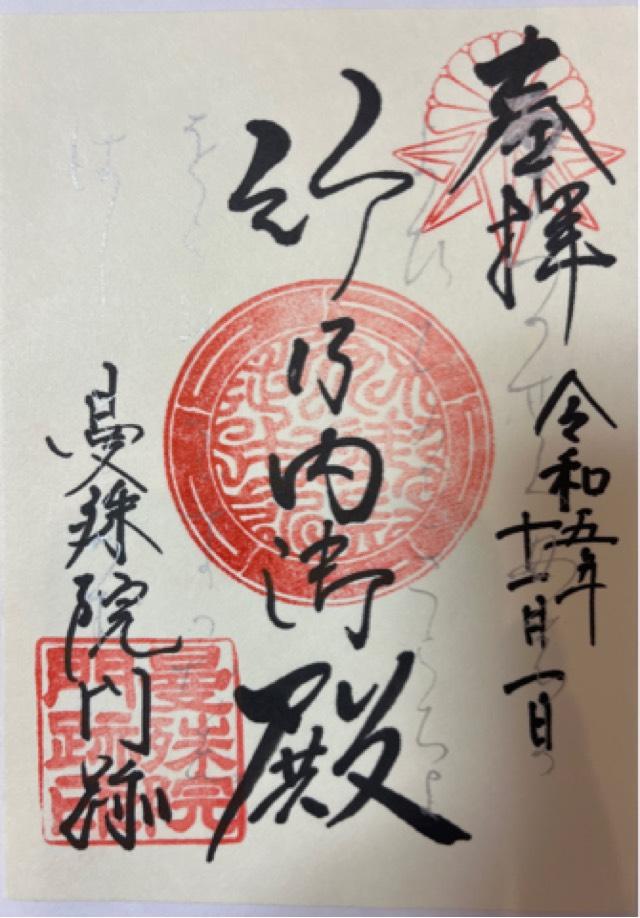 奉拝
令和五年
十一月一日
竹乃内御殿
曼殊院門跡
曼殊院
門跡印